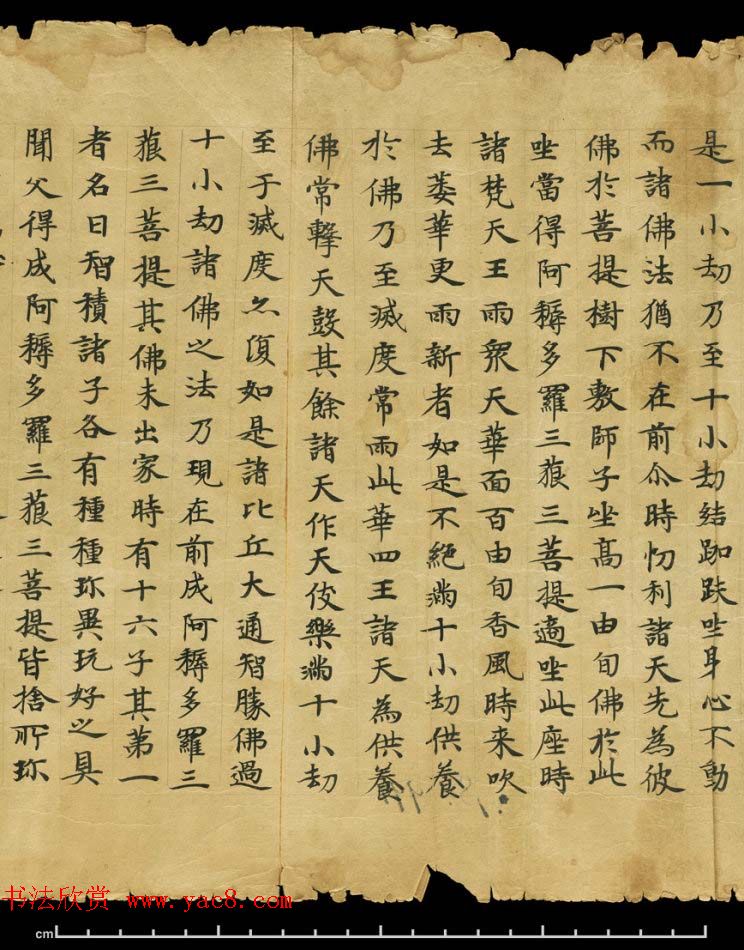 是一小劫乃至十小劫結跏趺坐身心不動
而諸佛法猶不在前尒時忉利諸天先為彼
佛於菩提樹下敷師子坐髙一由旬佛於此
坐當得阿耨多羅三藐三菩提適坐此座時
諸梵天王雨衆天華面百由旬香風時来吹
去萎華更雨新者如是不絕滿十小劫供養
於佛乃至滅度常雨此華四王諸天為供養
佛常擊天鼓其餘諸天作天伎樂滿十小劫
至于滅度亦復如是諸比丘大通智勝佛過
十小劫諸佛之法乃現在前成阿耨多羅三
藐三菩提其佛未出家時有十六子其第一
者名曰智積諸子各有種種珎異玩好之具
聞父得成阿耨多羅三藐三菩提皆捨所珎
书法欣赏 www.yac8.com
cm